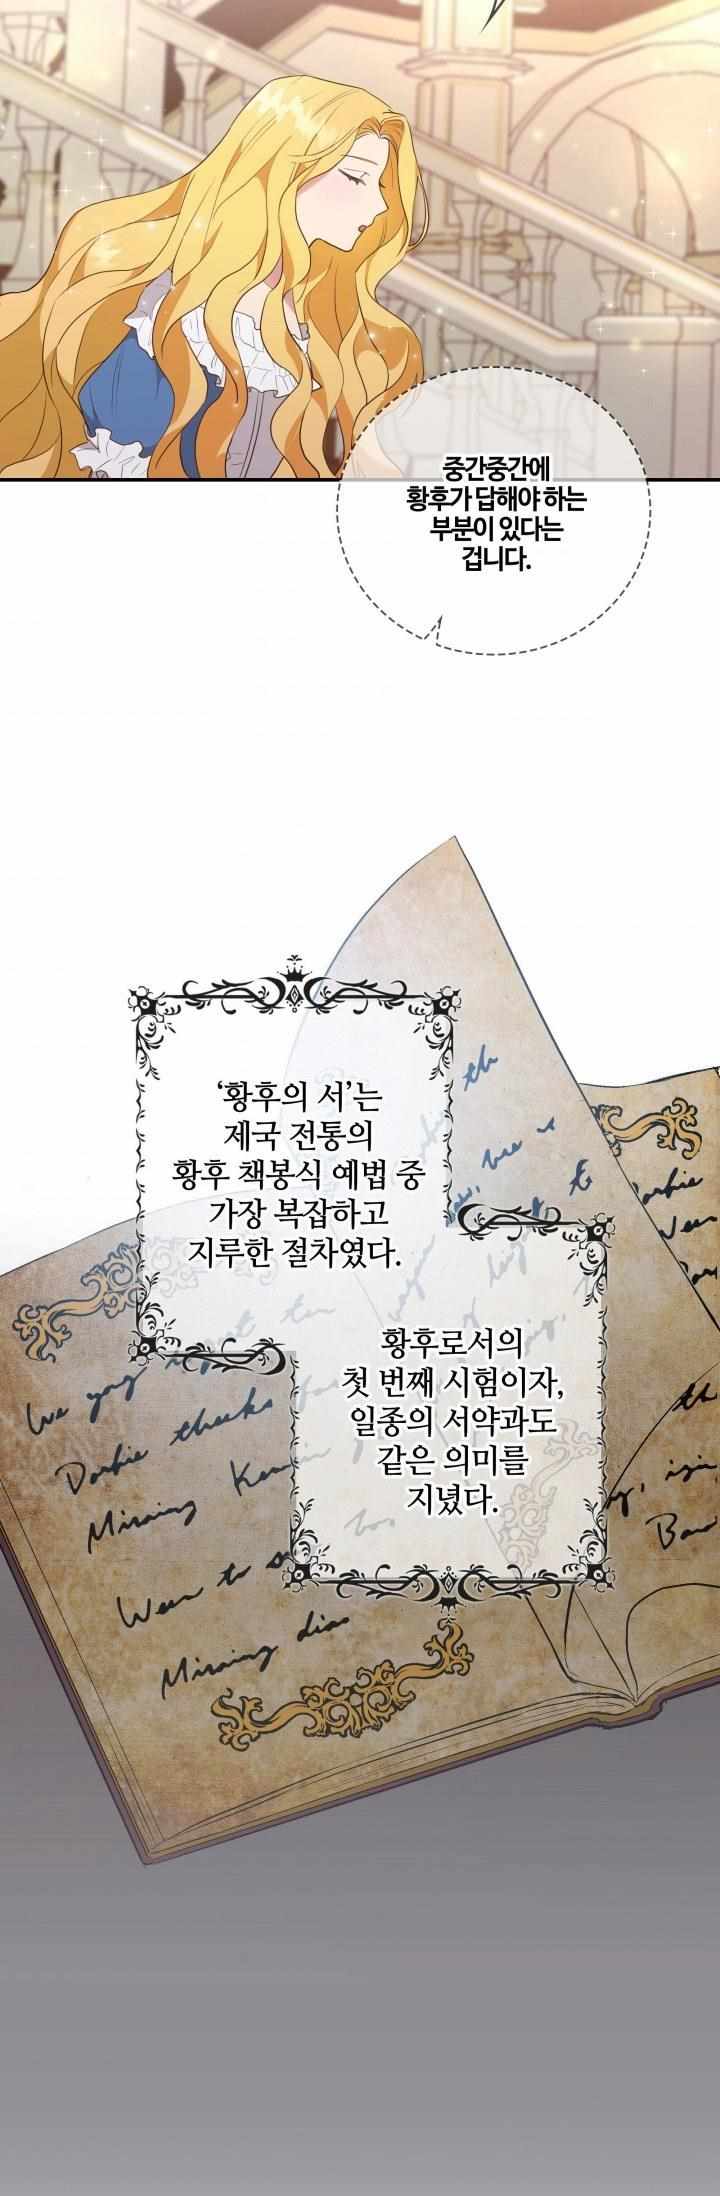 중간중간에
황후가 답해야 하는
부분이 있다는
겁니다.
‘황후의 서’는
제국 전통의
황후 책봉식 예법 중
가장 복잡하고
지루한 절차였다.
황후로서의
첫 번째 시험이자,
일종의 서약과도
같은 의미를
지녔다.
We
Darkie theeks
Miraing
Ween to
Miraing dias